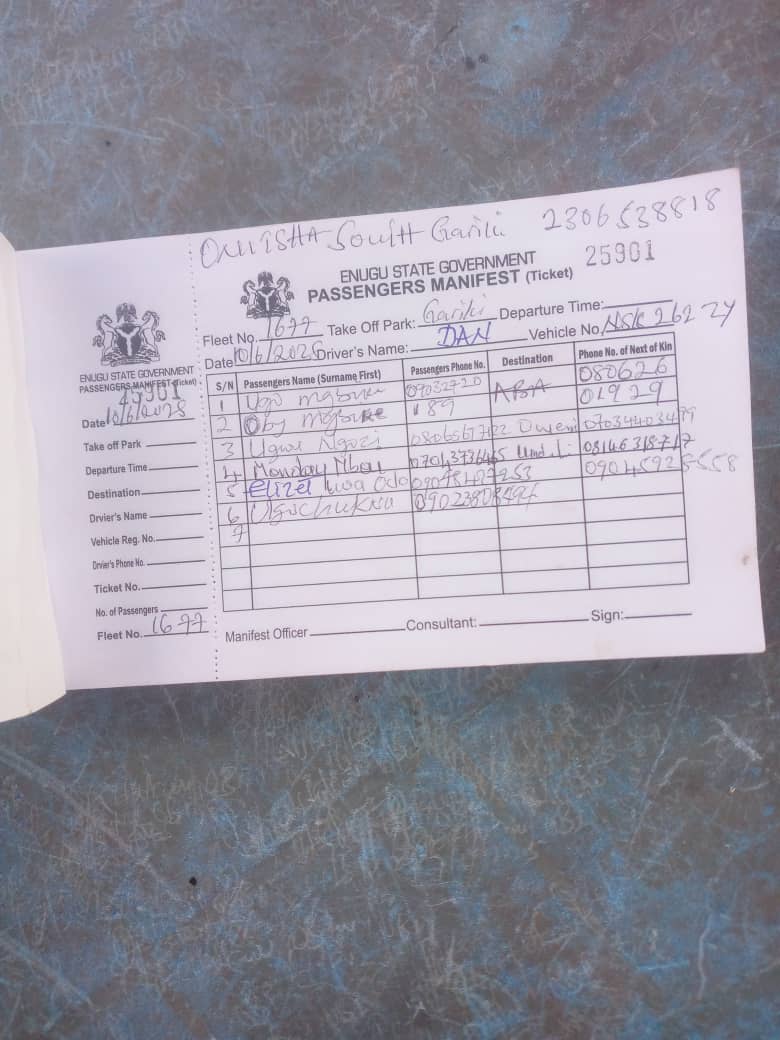 ONITSHA South Gariki 2306538818
ENUGU STATE GOVERNMENT 25901
PASSENGERS MANIFEST (Ticket)
Fleet No. 1677 Take Off Park: Gariki Departure Time:
Date 10/6/2025 Driver's Name: DAN Vehicle No. NSK 262 ZY
S/N Passengers Name (Surname First) Passengers Phone No. Destination Phone No. of Next of Kin
1 Ugo mgbuke 09032720 ABA 080626
2 Oby mgbuke 189 01929
3 Ugwu Ngozi Oweri
4 Monday Mbou 08146318717
5 0904592
6 Ugochukwu
7
Manifest Officer Consultant: Sign:
ENUGU STATE GOVERNMENT
PASSENGERS MANIFEST (Ticket)
Date 10/6/2025
Take off Park
Departure Time
Destination
Drvier's Name
Vehicle Reg. No.
Drvier's Phone No.
Ticket No.
No. of Passengers
Fleet No. 1677